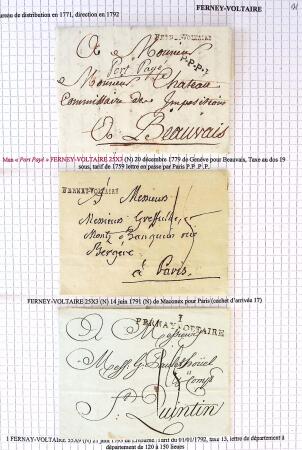 FERNEY-VOLTAIRE
ureau de distribution en 1771, direction en 1792
FERNEY-VOLTAIRE
A Monsieur
Port Payé
P.P.P.P.
Monsieur Chateau
Commissaire des Impositions
A Beauvais
Man « Port Payé » FERNEY-VOLTAIRE 25X3 (N) 20 décembre 1779 de Genéve pour Beauvais, Taxe au dos 19
sous, tarif de 1759 lettre en passe par Paris P.P.P.P.
FERNEY-VOLTAIRE
A Messieurs
Messieurs Greffulhe,
Montz
Banquiers rue
Bergére
à Paris.
FERNEY-VOLTAIRE 25X3 (N) 14 juin 1791 (N) de pour Paris (cachet d'arrivée 17)
1
FERNAY-VOLTAIRE
A Messieurs
Mess
& Comp
St Quintin
1 FERNAY-VOLTAIRE Tarif du 01/01/1792, taxe 13, lettre de département à
département de 120 à 150 lieues